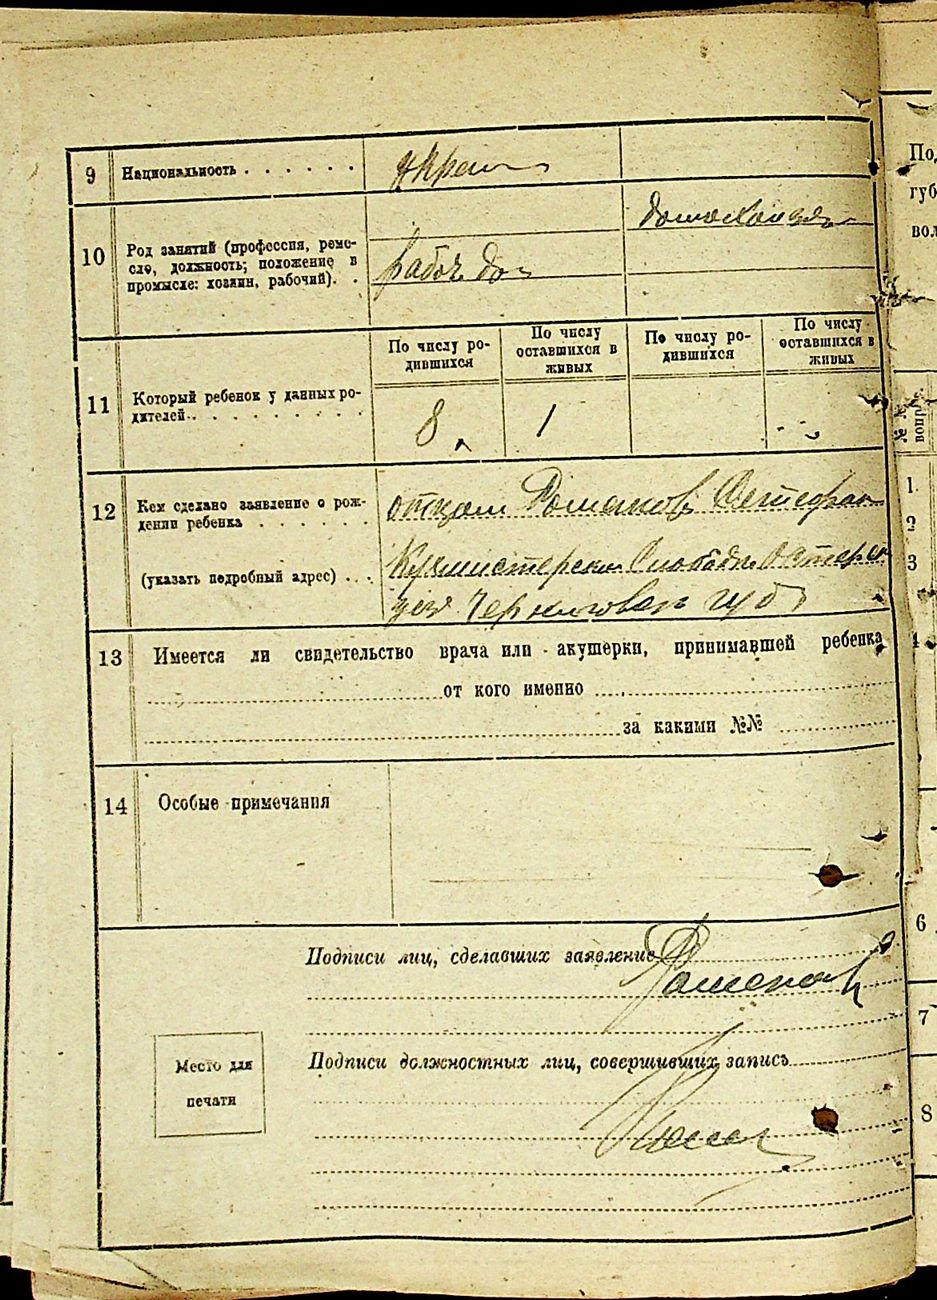 9 Национальность . . . . . . украин
домохозяй
10 Род занятий (профессия, ремес-
сло, должность; положение в
промысле: хозяин, рабочий). .
рабоч
По числу ро-
дившихся
По числу
оставшихся в
живых
По числу ро-
дившихся
По числу
оставшихся в
живых
11 Который ребенок у данных ро-
дителей. . . . . . . . . .
8 1
12 Кем сделано заявление о рож-
дении ребенка . . . . . . .
отцом Романов
(указать подробный адрес) . . .
Кухмистерская Слободка Остерск
уез Черниговск губ
13 Имеется ли свидетельство врача или акушерки, принимавшей ребенка
от кого именно
за какими №№
14 Особые примечания
Подписи лиц, сделавших заявление
Романов
Место для
печати
Подписи должностных лиц, совершивших запись
По
губ
вол
№ №
вопр.
1
2
3
4
6
7
8